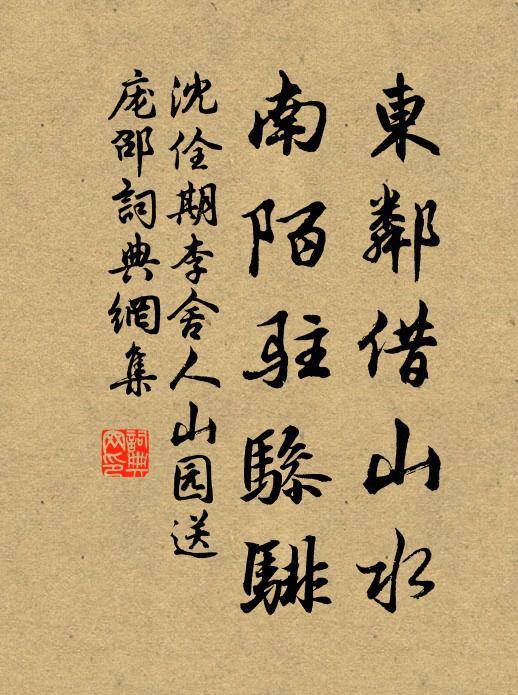 東鄰借山水
南陌駐驂騑
沈佺期李舍人山园送
庞邵詞典網集
詞典网印